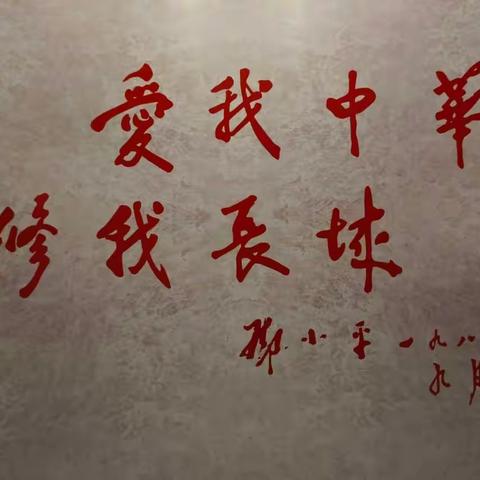 愛我中華
修我長城
鄧小平一九八
九月